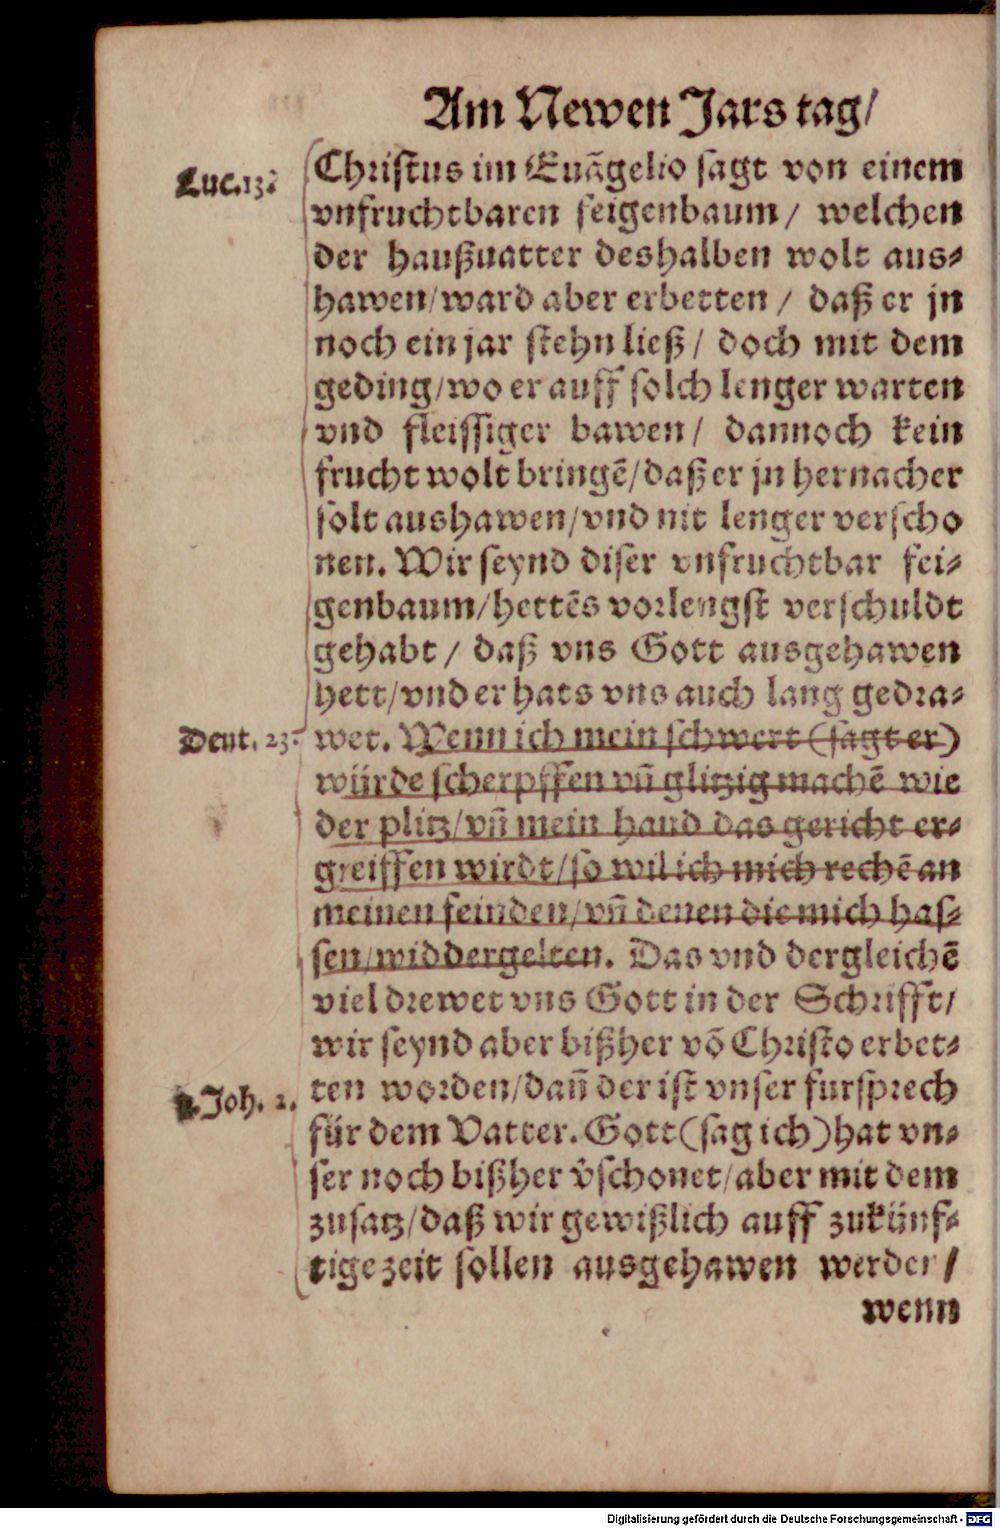 Am Newen Jars tag/
Luc. 13.
Christus im Euãgelio sagt von einem
vnfruchtbaren feigenbaum/ welchen
der haußuatter deshalben wolt aus-
hawen/ward aber erbetten / daß er jn
noch ein jar stehn ließ/ doch mit dem
geding/wo er auff solch lenger warten
vnd fleissiger bawen/ dannoch kein
frucht wolt bringẽ/daß er jn hernacher
solt aushawen/vnd nit lenger verscho
nen. Wir seynd diser vnfruchtbar fei-
genbaum/hettẽs vorlengst verschuldt
gehabt/ daß vns Gott ausgehawen
hett/vnd er hats vns auch lang gedra-
Deut. 23.
wet. Wenn ich mein schwert (sagt er)
würde scherpffen vñ glitzig machẽ wie
der plitz/vñ mein hand das gericht er-
greiffen wirdt/so wil ich mich rechẽ an
meinen feinden/vñ denen die mich has-
sen/widdergelten. Das vnd dergleichẽ
viel drewet vns Gott in der Schrifft/
wir seynd aber bißher võ Christo erbet-
1. Joh. 2.
ten worden/dañ der ist vnser fursprech
für dem Vatter. Gott(sag ich)hat vn-
ser noch bißher v̂schonet/aber mit dem
zusatz/daß wir gewißlich auff zukünf-
tige zeit sollen ausgehawen werden/
wenn
Digitalisierung gefördert durch die Deutsche Forschungsgemeinschaft - DFG